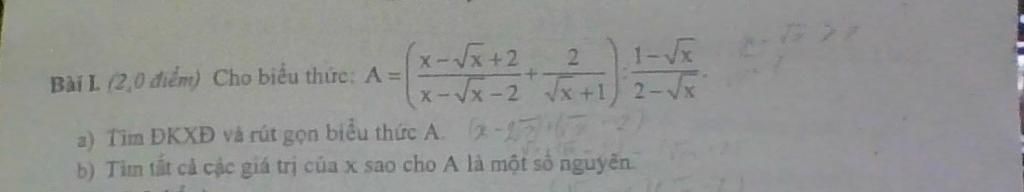 Bài I. (2,0 điểm) Cho biểu thức: A = ( (x − √x + 2)/(x − √x − 2) + 2/(√x + 1) ) : (1 − √x)/(2 − √x).
a) Tìm ĐKXĐ và rút gọn biểu thức A.
b) Tìm tất cả các giá trị của x sao cho A là một số nguyên.